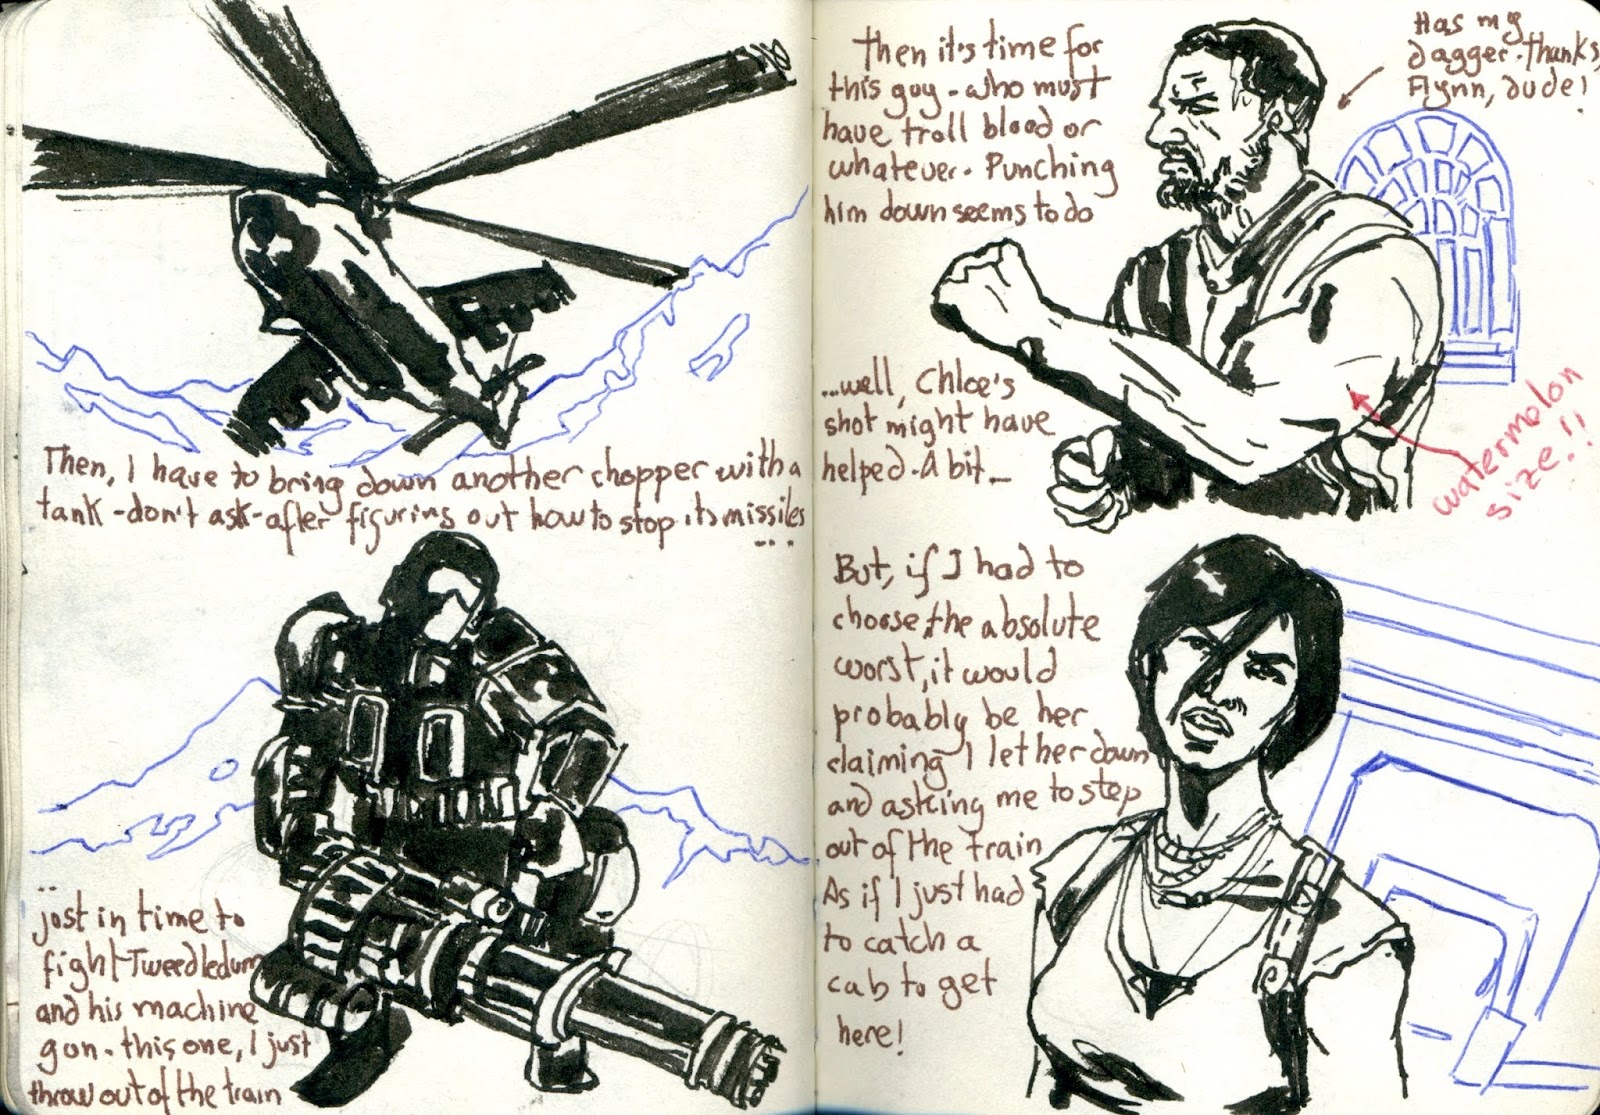 Then, I have to bring down another chopper with a
tank - don't ask - after figuring out how to stop its missiles
...
..
just in time to
fight Tweedledum
and his machine
gun. this one, I just
throw out of the train
Then it's time for
this guy - who must
have troll blood or
whatever. Punching
him down seems to do
Has my
dagger. thanks,
Flynn, dude!
...well, Chloe's
shot might have
helped. A bit...
watermelon
size!!
But, if I had to
choose the absolute
worst, it would
probably be her
claiming I let her down
and asking me to step
out of the train
As if I just had
to catch a
cab to get
here!